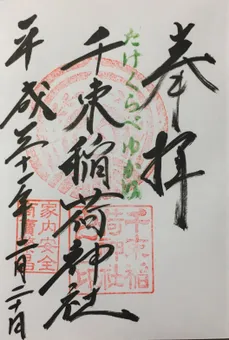 奉拝
たけくらべゆか
千束稲荷神社
平成三十年二月二十日
千束稲荷神社印
家内安全
商賣繁昌